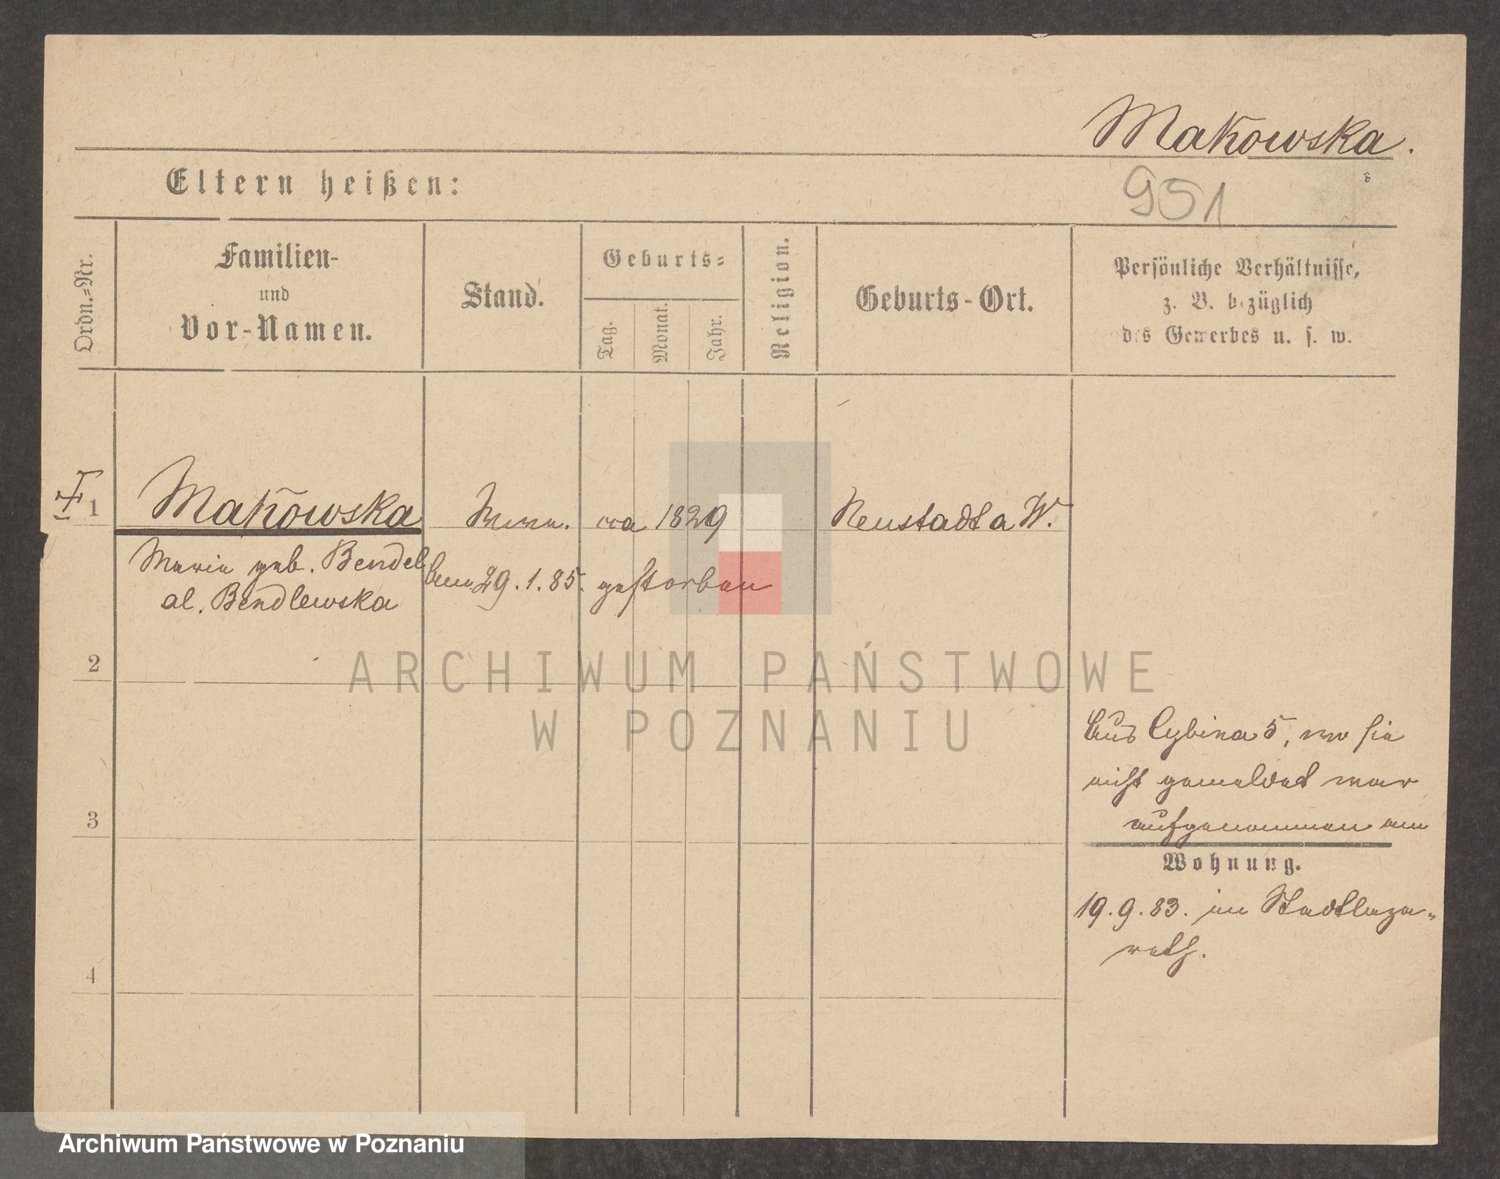 Makowska.
951
Eltern heißen:
Ordn.=Nr.
Familien-
und
Vor-Namen.
Stand.
Geburts=
Tag.
Monat.
Jahr.
Religion.
Geburts-Ort.
Persönliche Verhältnisse,
z. B. bezüglich
des Gewerbes u. s. w.
1
Makowska
ca 1829
Neustadt a W.
Maria geb. Bendel
al. Bendlewska
am 29. 1. 85. gestorben
2
ARCHIWUM PAŃSTWOWE
W POZNANIU
Aus Cybina 5, wo sie
nicht gemeldet war
aufgenommen am
3
Wohnung.
19. 9. 83. im Stadtlaza-
reth.
4
Archiwum Państwowe w Poznaniu